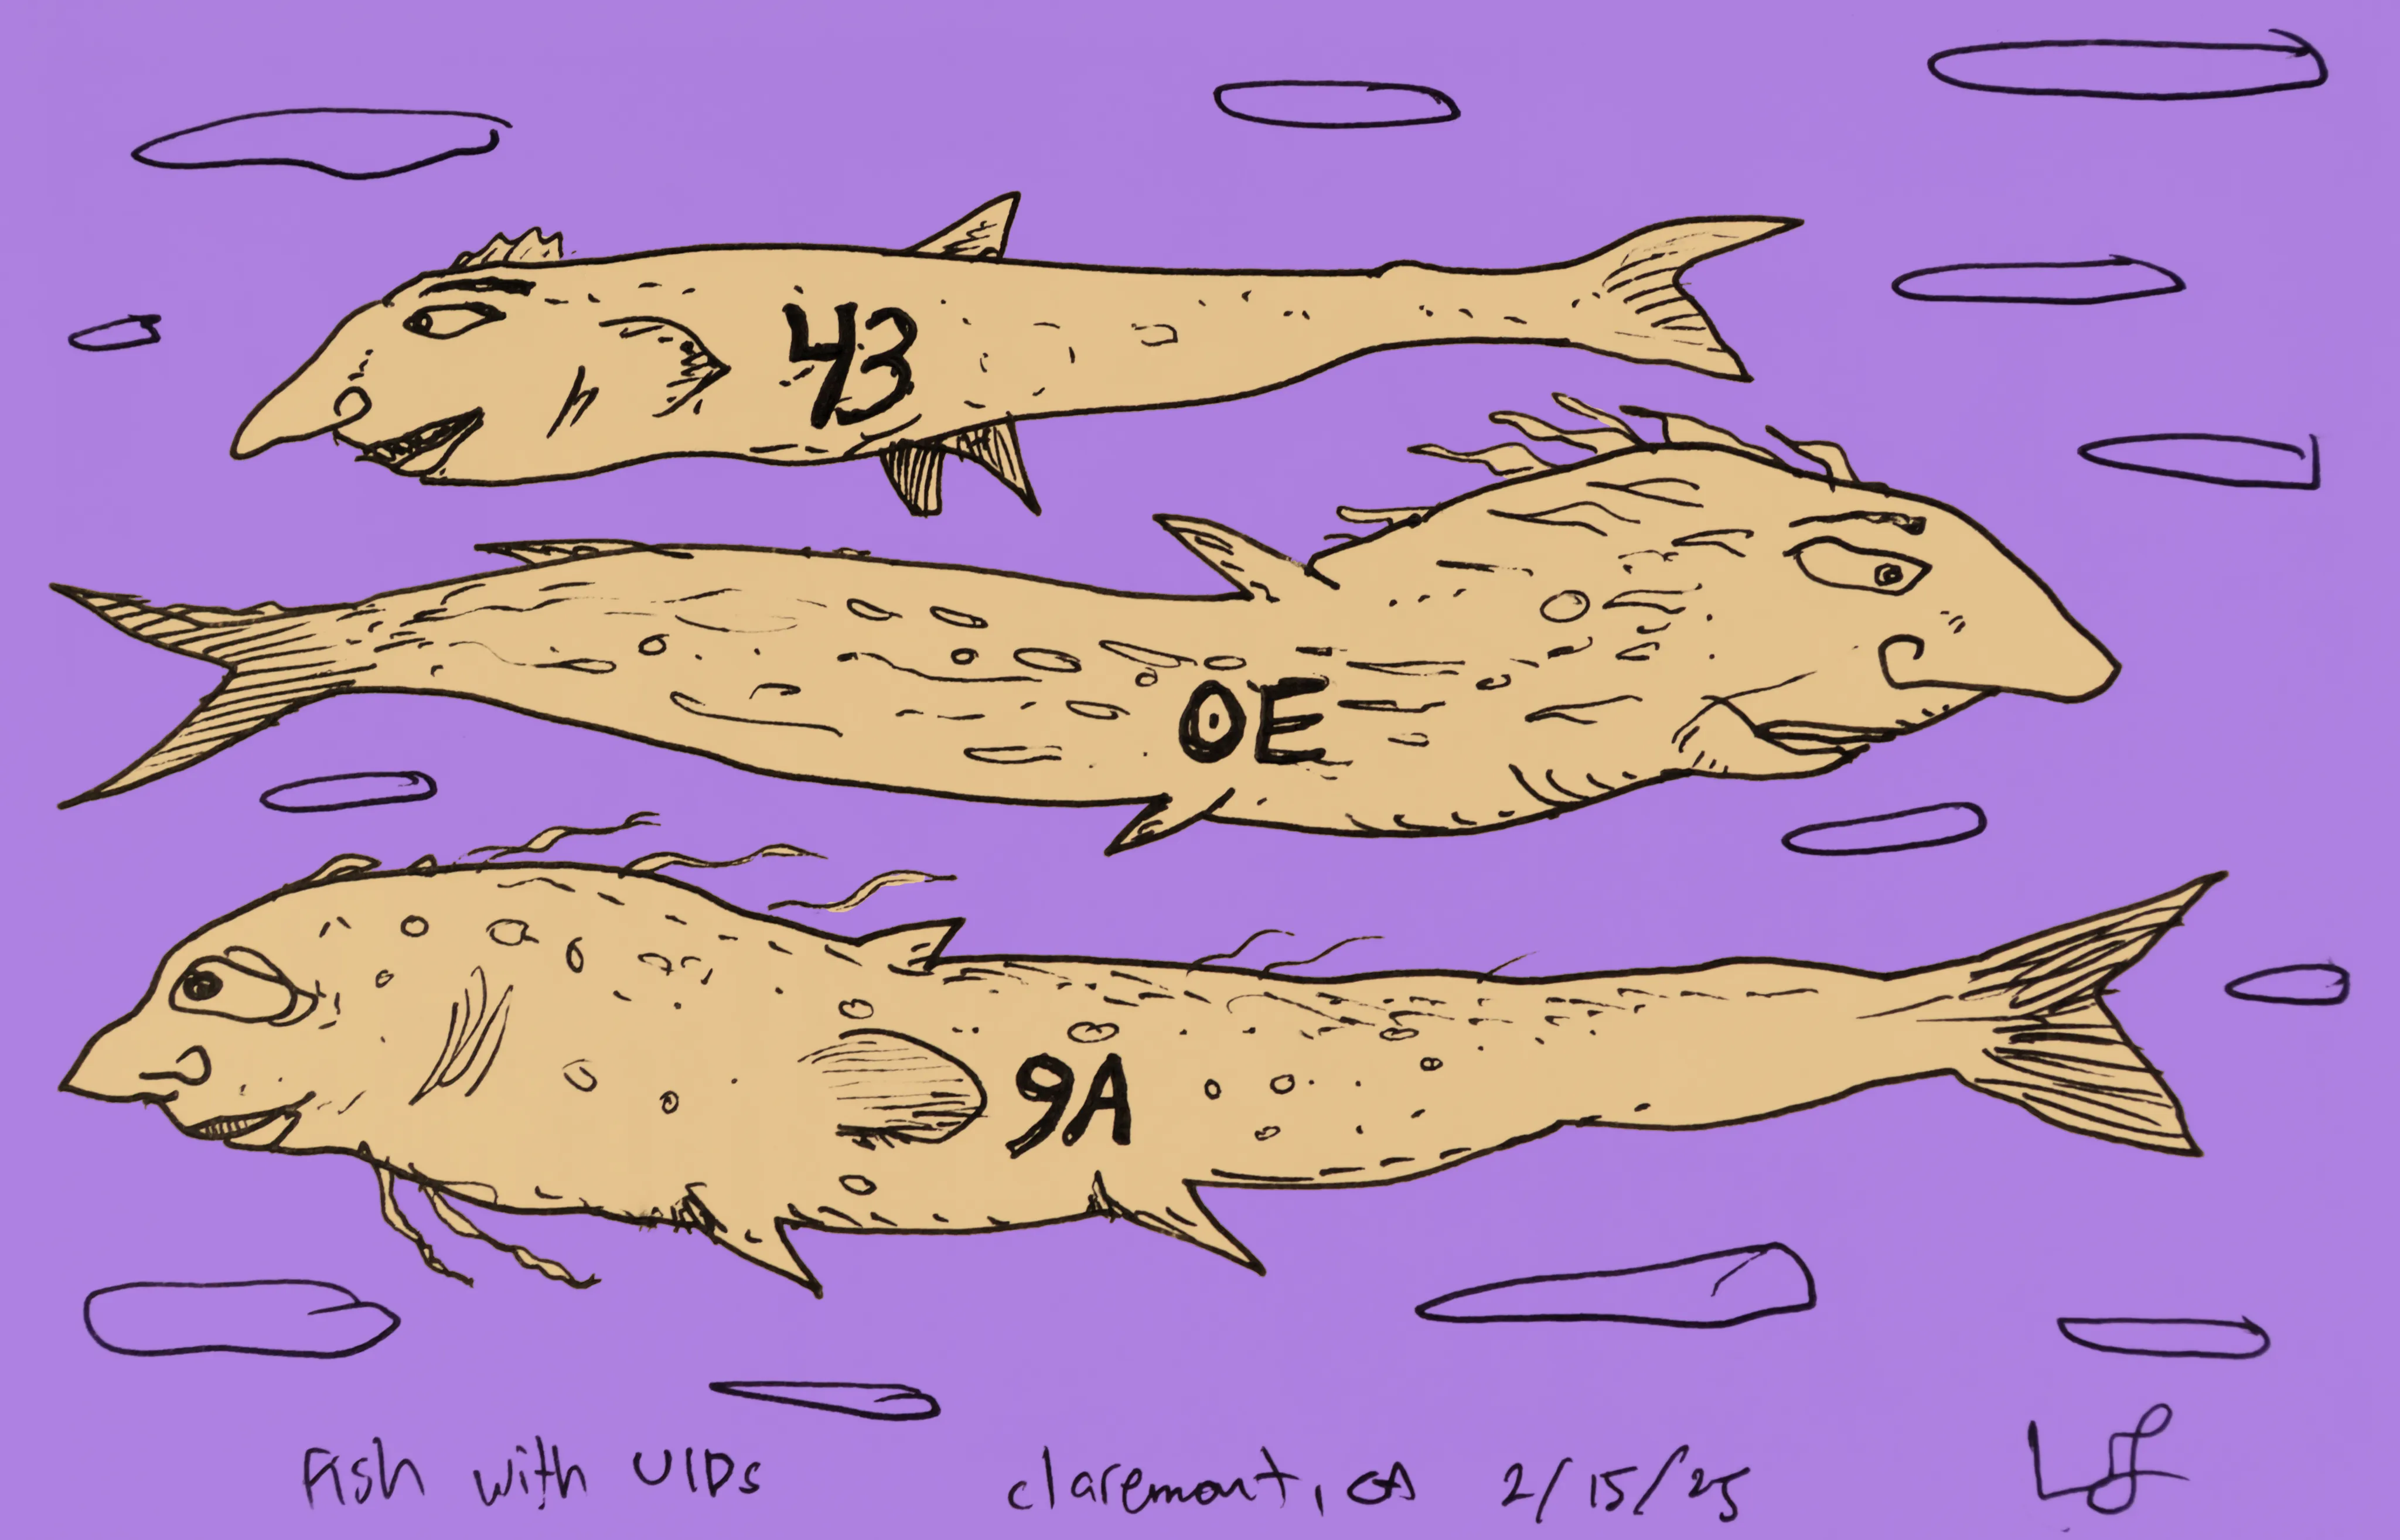 43
OE
9A
Fish with UIDs
claremont, CA 2/15/25